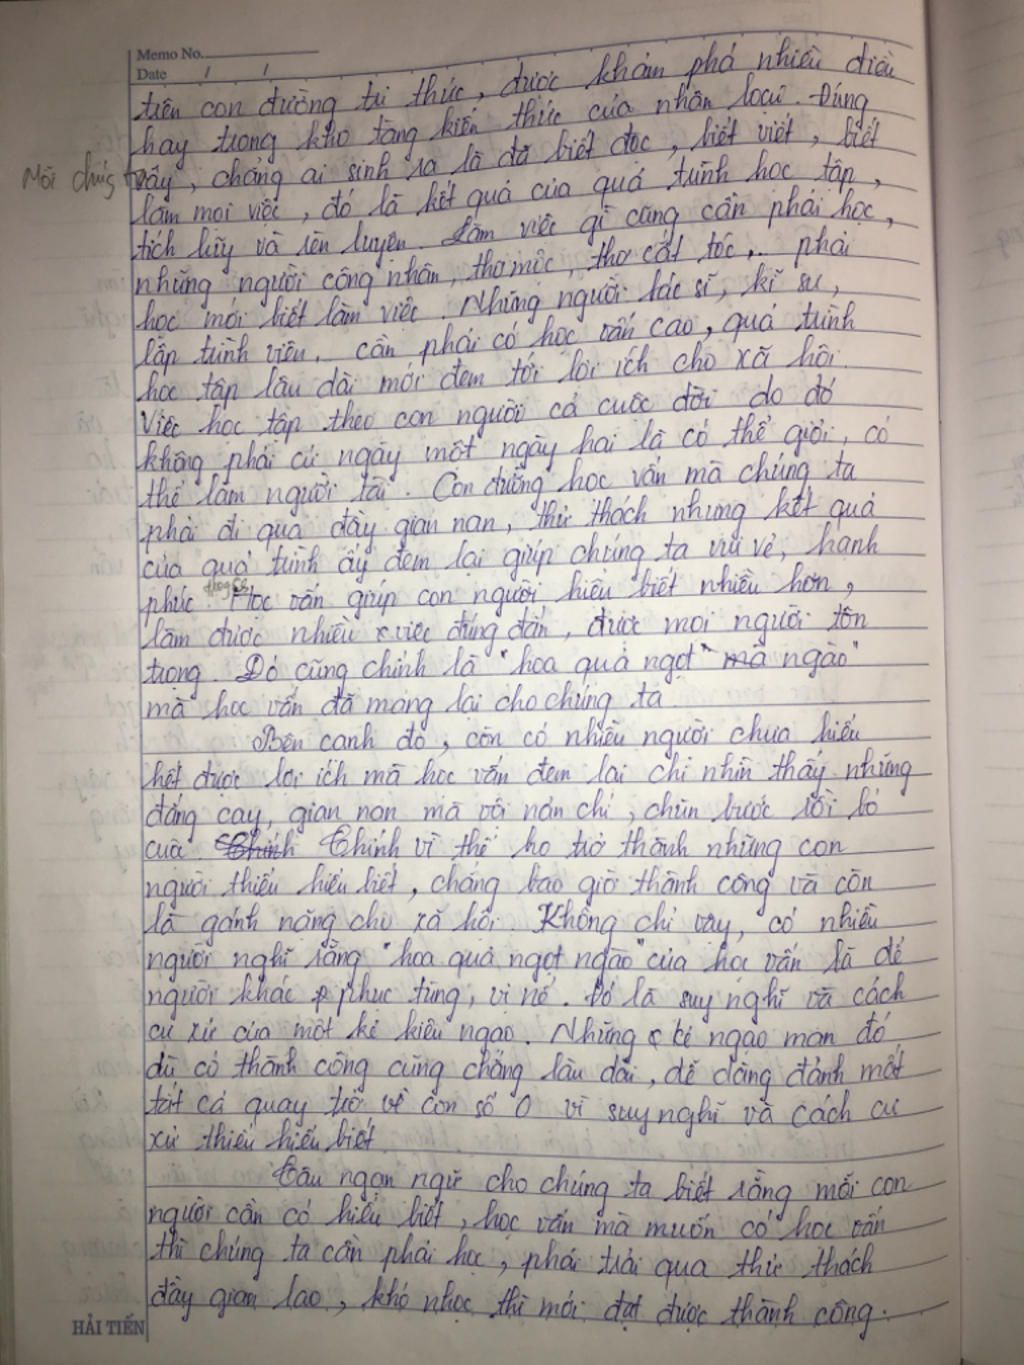 Memo No.
Date / /
trên con đường tri thức, được khám phá nhiều điều
hay trong kho tàng kiến thức của nhân loại. Đúng
Mỗi chúng ta
vậy, chẳng ai sinh ra là đã biết đọc, biết viết, biết
làm mọi việc, đó là kết quả của quá trình học tập,
tích lũy và rèn luyện. Làm việc gì cũng cần phải học,
những người công nhân, thợ mộc, thợ cắt tóc,.. phải
học mới biết làm việc. Những người bác sĩ, kĩ sư,
lập trình viên, cần phải có học vấn cao, quá trình
học tập lâu dài mới đem tới lợi ích cho xã hội.
Việc học tập theo con người cả cuộc đời do đó
không phải cứ ngày một ngày hai là có thể giỏi, có
thể làm người tài. Con đường học vấn mà chúng ta
phải đi qua đầy gian nan, thử thách nhưng kết quả
của quá trình ấy đem lại giúp chúng ta vui vẻ, hạnh
phúc. Học vấn giúp con người hiểu biết nhiều hơn,
làm được nhiều việc đúng đắn, được mọi người tôn
trọng. Đó cũng chính là "hoa quả ngọt" mà ngào"
mà học vấn đã mang lại cho chúng ta.
Bên cạnh đó, còn có nhiều người chưa hiểu
hết được lợi ích mà học vấn đem lại chỉ nhìn thấy những
đắng cay, gian nan mà vội nản chí, chùn bước rồi bỏ
cuộc. Chính vì thế họ trở thành những con
người thiếu hiểu biết, chẳng bao giờ thành công và còn
là gánh nặng cho xã hội. Không chỉ vậy, có nhiều
người nghĩ rằng "hoa quả ngọt ngào" của học vấn là để
người khác phục tùng, vị nể. Đó là suy nghĩ và cách
cư xử của một kẻ kiêu ngạo. Những kẻ ngạo mạn đó
dù có thành công cũng chẳng lâu dài, dễ dàng đánh mất
tất cả quay trở về con số 0 vì suy nghĩ và cách cư
xử thiếu hiểu biết.
Câu ngạn ngữ cho chúng ta biết rằng mỗi con
người cần có hiểu biết, học vấn mà muốn có học vấn
thì chúng ta cần phải học, phải trải qua thử thách
đầy gian lao, khó nhọc thì mới đạt được thành công.
HẢI TIẾN